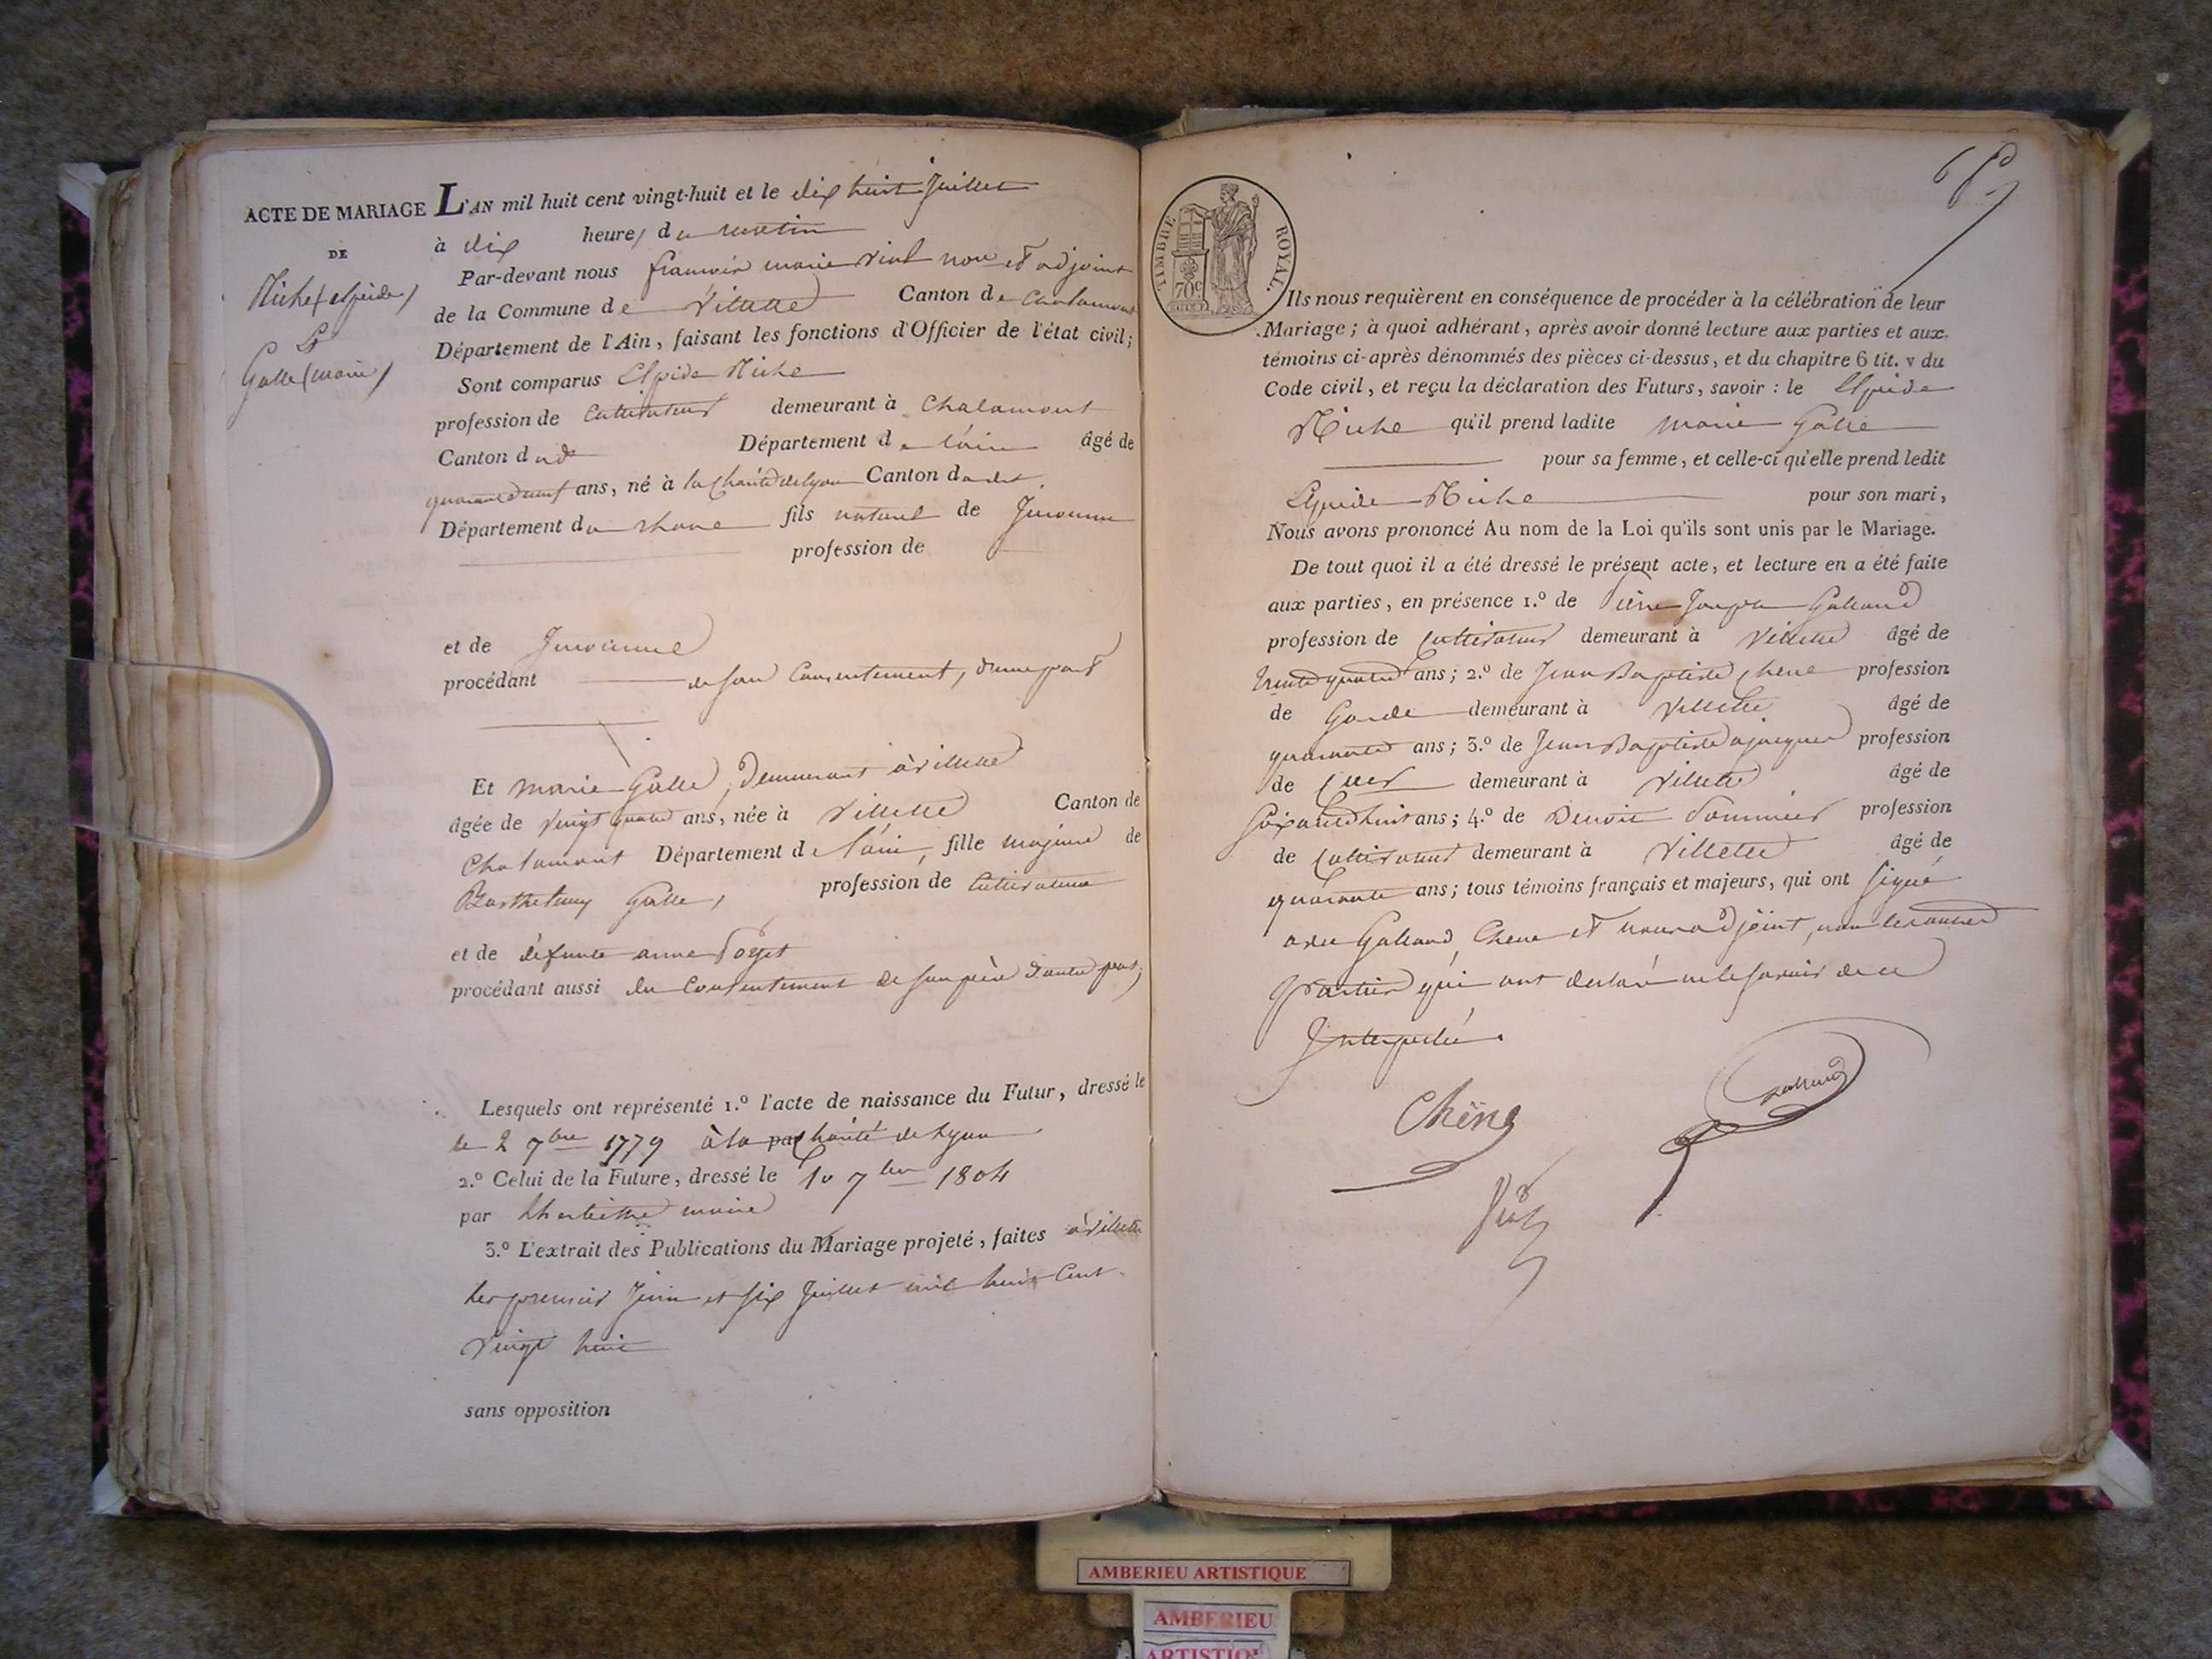 ACTE DE MARIAGE
DE
Niche (elpide)
&
Galle (marie)
L'AN mil huit cent vingt-huit et le dix huit Juillet
à dix heures du matin
Par-devant nous françois marie adjoint
de la Commune de Villette Canton de Chalamont
Département de l'Ain, faisant les fonctions d'Officier de l'état civil;
Sont comparus Elpide Niche
profession de Cultivateur demeurant à Chalamont
Canton dudt Département de l'ain âgé de
quarante neuf ans, né à la Charité de lyon Canton dudt
Département du rhone fils naturel de Inconnu
profession de
et de Inconnue
procédant de son Consentement, d'une part
Et marie Galle, Demeurant à villette
âgée de vingt quatre ans, née à Villette Canton de
Chalamont Département de l'ain, fille majeure de
Barthelemy Galle, profession de Cultivateur
et de défunte anne
procédant aussi du Consentement de son père d'autre part,
Lesquels ont représenté 1.º l'acte de naissance du Futur, dressé le
le 2 7bre 1779 à la Charité de Lyon
2.º Celui de la Future, dressé le 10 7bre 1804
par maire
3.º L'extrait des Publications du Mariage projeté, faites à villette
les premier Juin et six Juillet mil huit Cent
vingt huit
sans opposition
TIMBRE ROYAL.
70c
Ils nous requièrent en conséquence de procéder à la célébration de leur
Mariage; à quoi adhérant, après avoir donné lecture aux parties et aux
témoins ci-après dénommés des pièces ci-dessus, et du chapitre 6 tit. v du
Code civil, et reçu la déclaration des Futurs, savoir : le Elpide
Niche qu'il prend ladite marie Galle
pour sa femme, et celle-ci qu'elle prend ledit
Elpide Niche pour son mari,
Nous avons prononcé Au nom de la Loi qu'ils sont unis par le Mariage.
De tout quoi il a été dressé le présent acte, et lecture en a été faite
aux parties, en présence 1.º de Pierre Joseph Galland
profession de Cultivateur demeurant à Villette âgé de
trente quatre ans; 2.º de Jean Baptiste Chene profession
de Garde demeurant à Villette âgé de
quarante ans; 3.º de Jean Baptiste profession
de demeurant à Villette âgé de
Soixante huit ans; 4.º de Benoit profession
de Cultivateur demeurant à Villette âgé de
quarante ans; tous témoins français et majeurs, qui ont signé
avec Galland, Chene et nous adjoint, non les autres
parties qui ont déclaré ne le savoir de ce
Interpellé.
Chêne
Galland
AMBERIEU ARTISTIQUE
AMBERIEU
ARTISTIQ